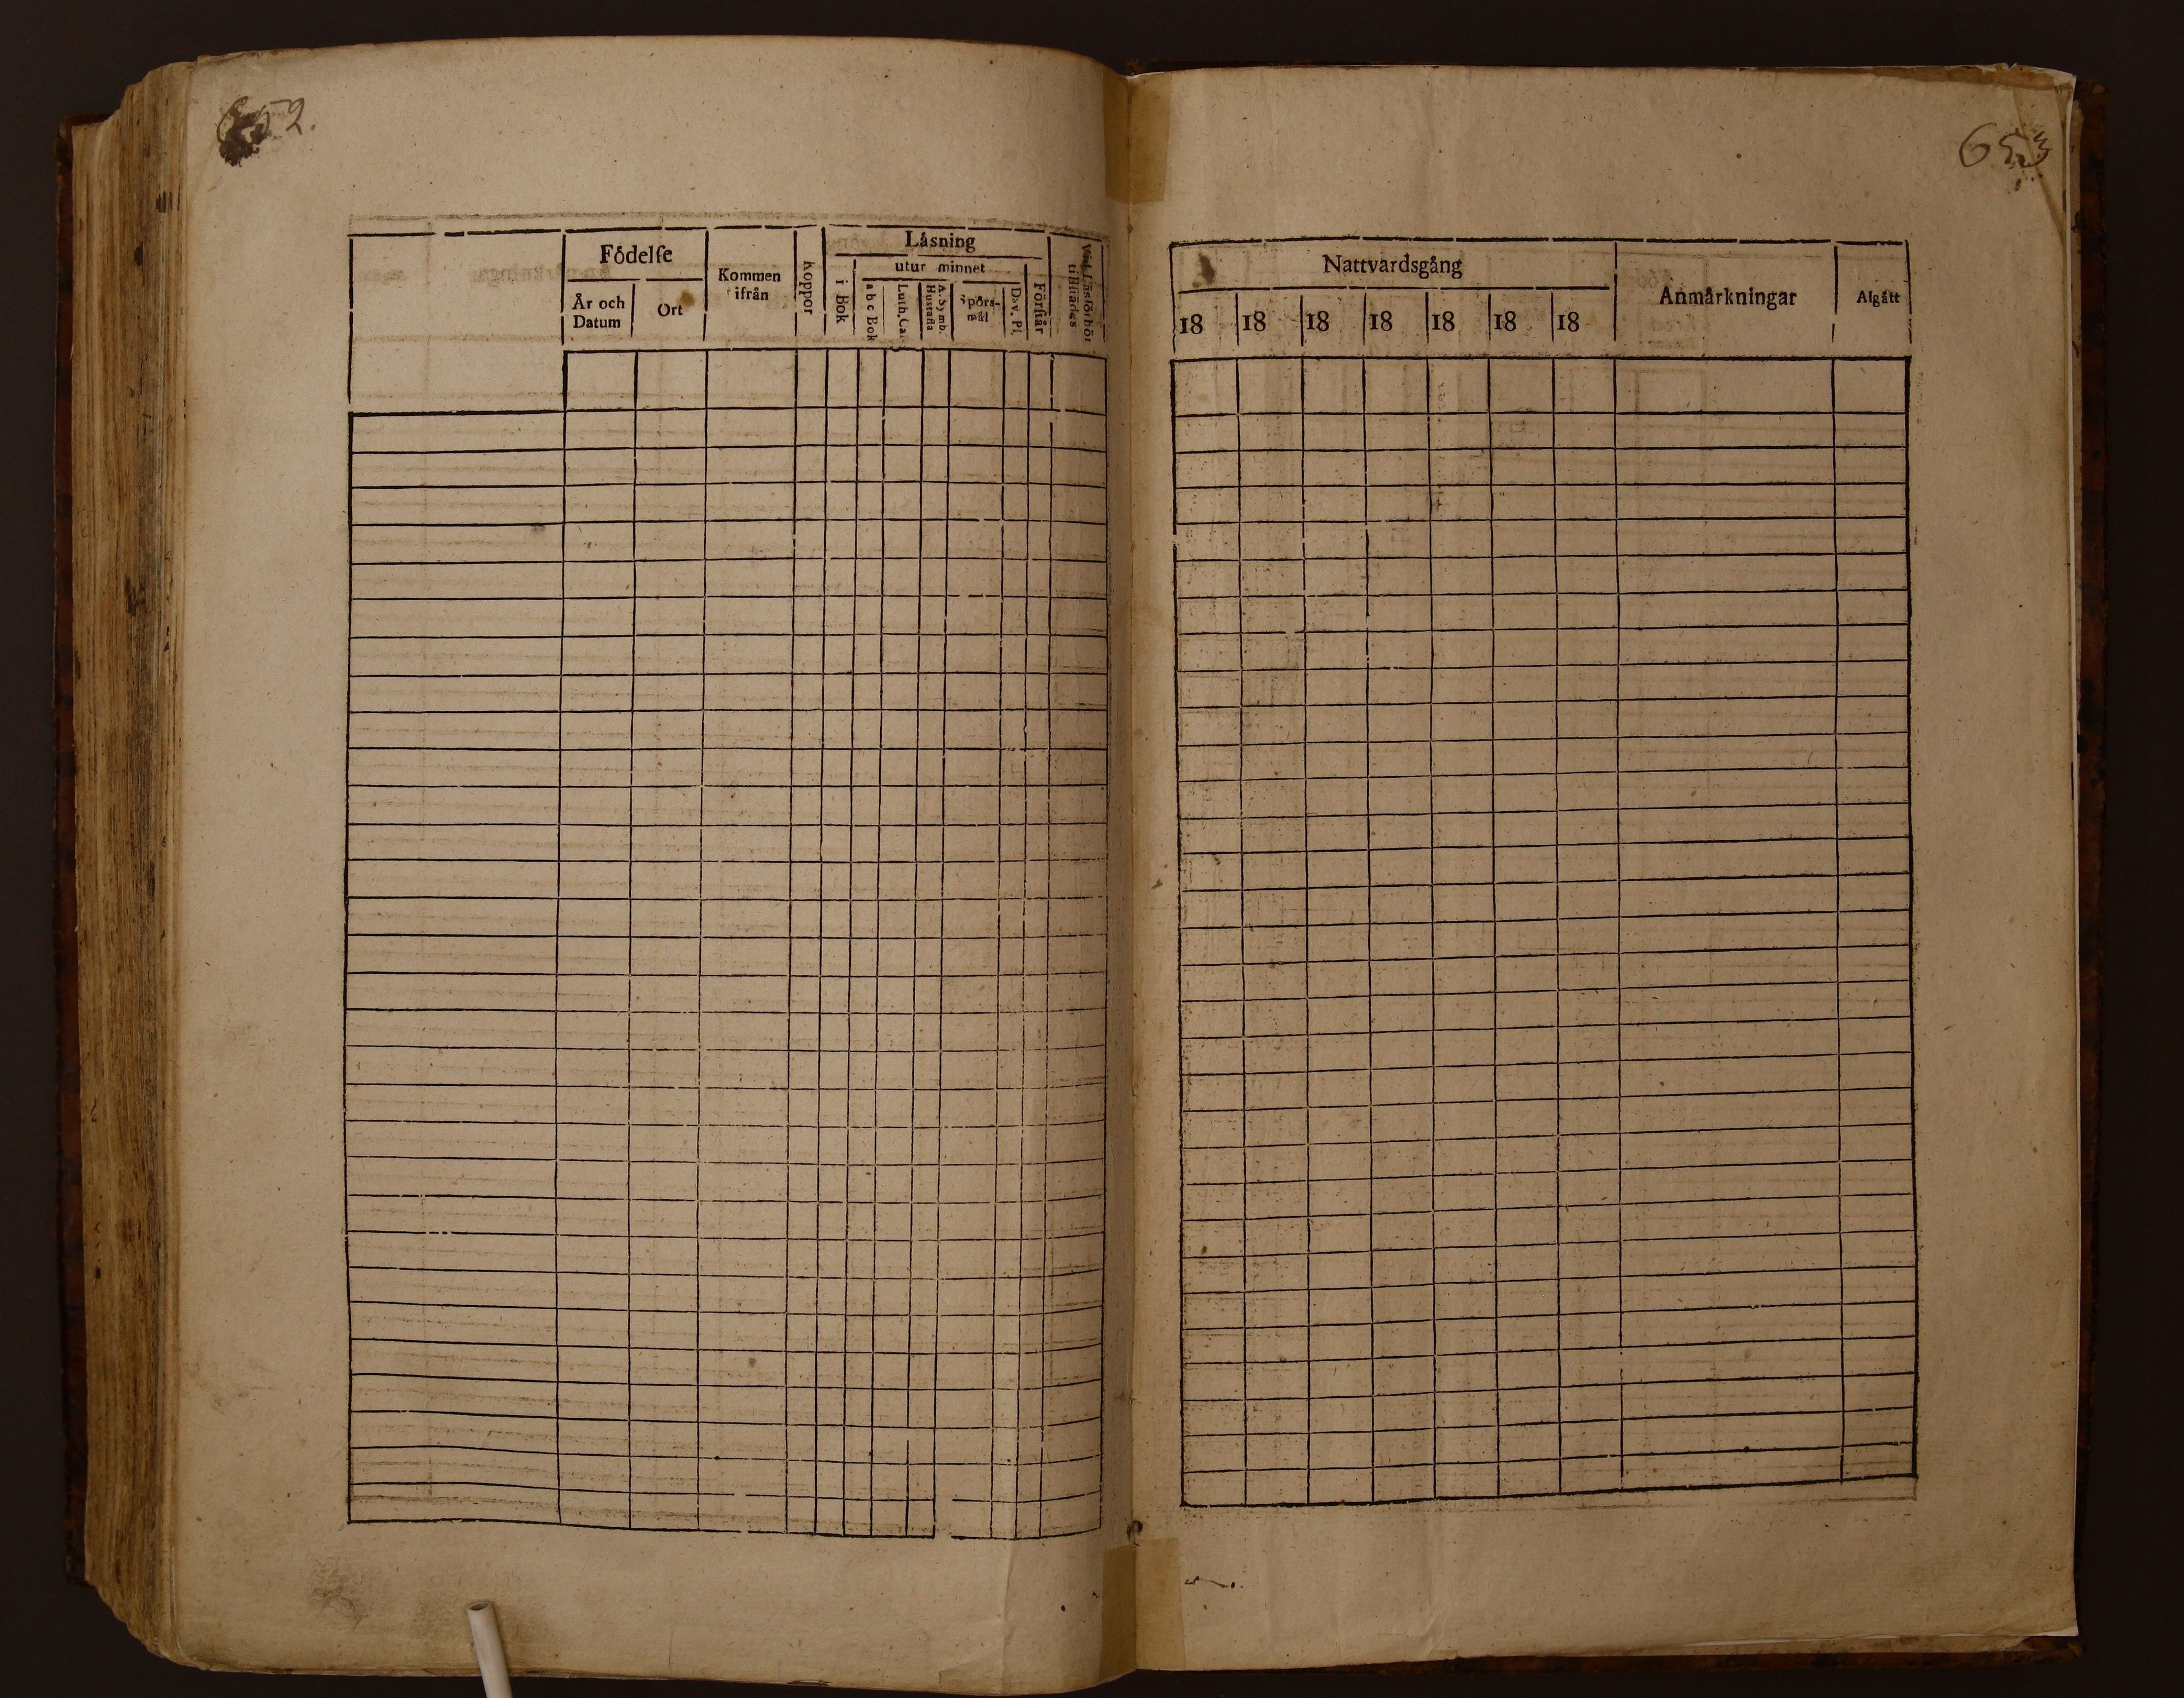 652.
Födelse
År och Datum
Ort
Kommen ifrån
Koppor
Läsning
i Bok
utur minnet
a b c Bok
Luth. Ca
A. Symb. Hustafla
Spörsmål
Dav. Ps.
Förstår
Vid Läsförhör tillstädes
653
Nattvardsgång
18 18 18 18 18 18 18
Anmärkningar
Afgått